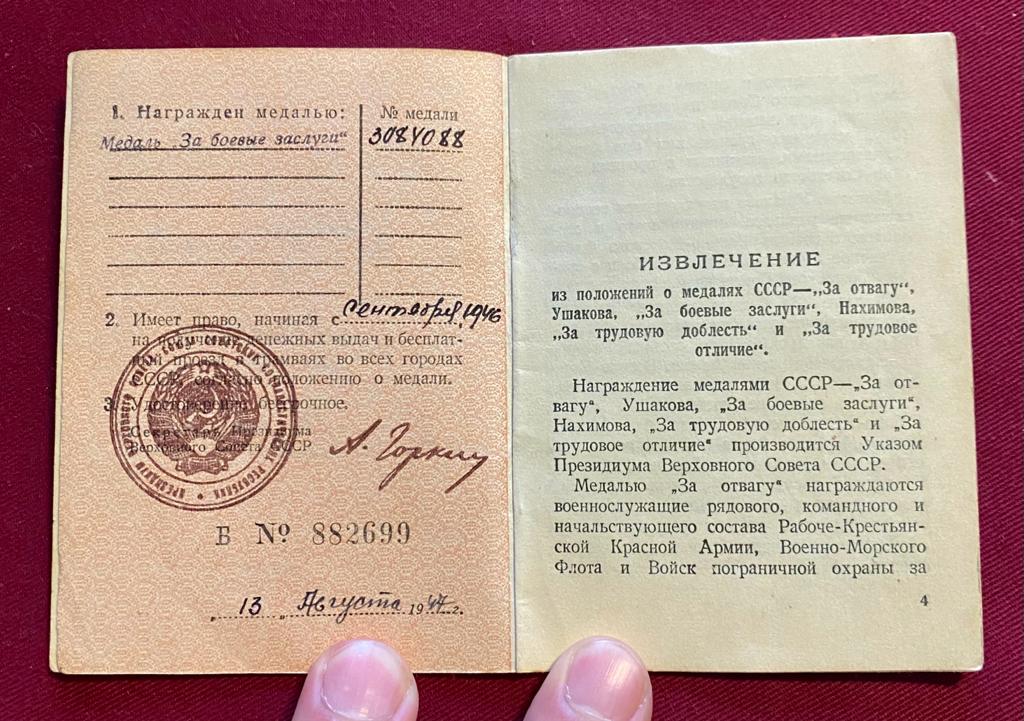 1. Награжден медалью:
№ медали
Медаль „За боевые заслуги“
3084088
2. Имеет право, начиная с Сентября, 1946
на получение денежных выдач и бесплат-
ный проезд в трамваях во всех городах
СССР, согласно положению о медали.
3. Удостоверение бессрочное.
Секретарь Президиума
Верховного Совета СССР
А. Горкин
Б № 882699
„13„ Августа 1947 г.
ИЗВЛЕЧЕНИЕ
из положений о медалях СССР—„За отвагу“,
Ушакова, „За боевые заслуги“, Нахимова,
„За трудовую доблесть“ и „За трудовое
отличие“.
Награждение медалями СССР—„За от-
вагу“, Ушакова, „За боевые заслуги“,
Нахимова, „За трудовую доблесть“ и „За
трудовое отличие“ производится Указом
Президиума Верховного Совета СССР.
Медалью „За отвагу“ награждаются
военнослужащие рядового, командного и
начальствующего состава Рабоче-Крестьян-
ской Красной Армии, Военно-Морского
Флота и Войск пограничной охраны за
4